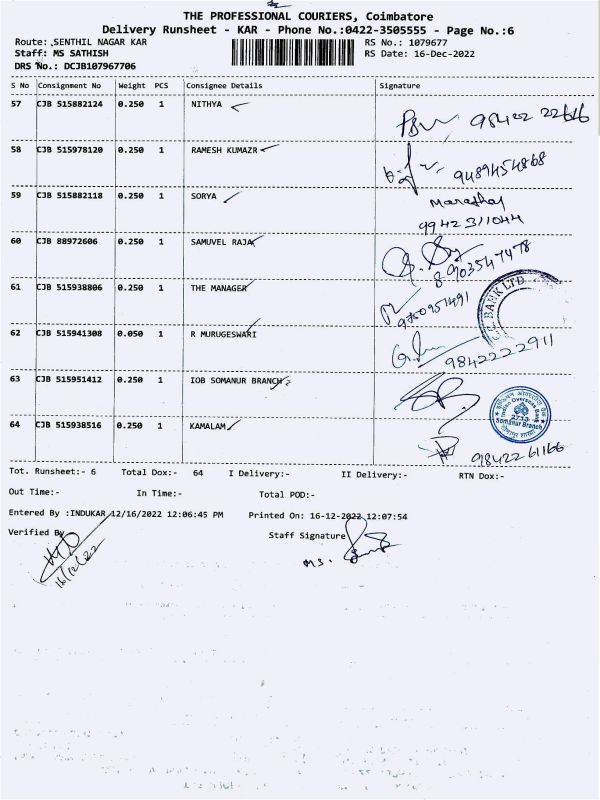 THE PROFESSIONAL COURIERS, Coimbatore
Delivery Runsheet - KAR - Phone No.:0422-3505555 - Page No.:6
Route: SENTHIL NAGAR KAR RS No.: 1079677
Staff: MS SATHISH RS Date: 16-Dec-2022
DRS No.: DCJB107967706
S No Consignment No Weight PCS Consignee Details Signature
57 CJB 515882124 0.250 1 NITHYA 98422 22616
58 CJB 515978120 0.250 1 RAMESH KUMAZR 9489454868
59 CJB 515882118 0.250 1 SORYA
9942311044
60 CJB 88972606 0.250 1 SAMUVEL RAJA 8903547478
61 CJB 515938806 0.250 1 THE MANAGER 9750951491
BANK LTD
62 CJB 515941308 0.050 1 R MURUGESWARI 9842222911
63 CJB 515951412 0.250 1 IOB SOMANUR BRANCH
Indian Overseas Bank
2733
Somanur Branch
64 CJB 515938516 0.250 1 KAMALAM 98422 61166
Tot. Runsheet:- 6 Total Dox:- 64 I Delivery:- II Delivery:- RTN Dox:-
Out Time:- In Time:- Total POD:-
Entered By :INDUKAR 12/16/2022 12:06:45 PM Printed On: 16-12-2022 12:07:54
Verified By Staff Signature
16/12/22
MS.